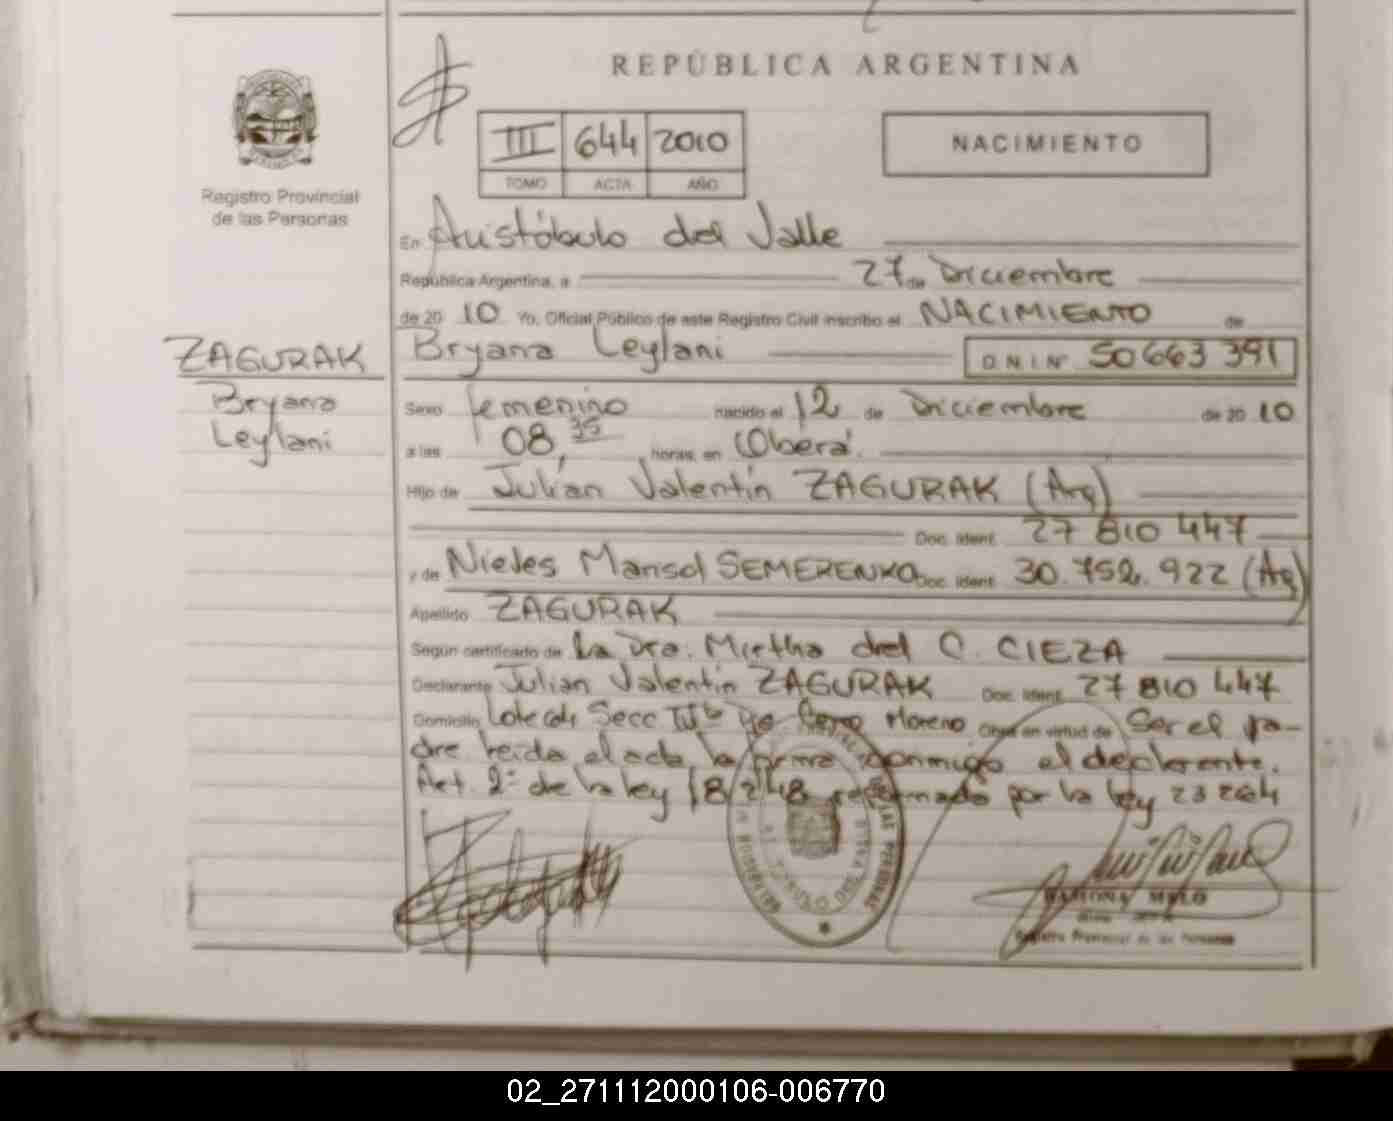 REPÚBLICA ARGENTINA
III 644 2010
TOMO ACTA AÑO
NACIMIENTO
Registro Provincial
de las Personas
En Aristóbulo del Valle
República Argentina, a 27 de Diciembre
de 20 10 Yo, Oficial Público de este Registro Civil inscribo el NACIMIENTO de
ZAGURAK
Bryana Leylani D.N.I.Nº 50663 391
Bryana
Leylani
Sexo femenino nacido el 12 de Diciembre de 20 10
a las 08,35 horas, en Oberá.
Hijo de Julián Valentín ZAGURAK (Arg)
Doc. Ident. 27 810 447
y de Nieves Marisol SEMERENKO Doc. Ident. 30.752.922 (Arg)
Apellido ZAGURAK
Según certificado de La Dra. Mirtha del C. CIEZA
Declarante Julián Valentín ZAGURAK Doc. Ident. 27 810 447
Domicilio Lote Secc Moreno Obra en virtud de Ser el pa-
dre leida el acta la firma conmigo el declarante.
Art. 2º de la ley 18248 reformado por la ley 23264
RAMONA MELO
Registro Provincial de las Personas
02_271112000106-006770